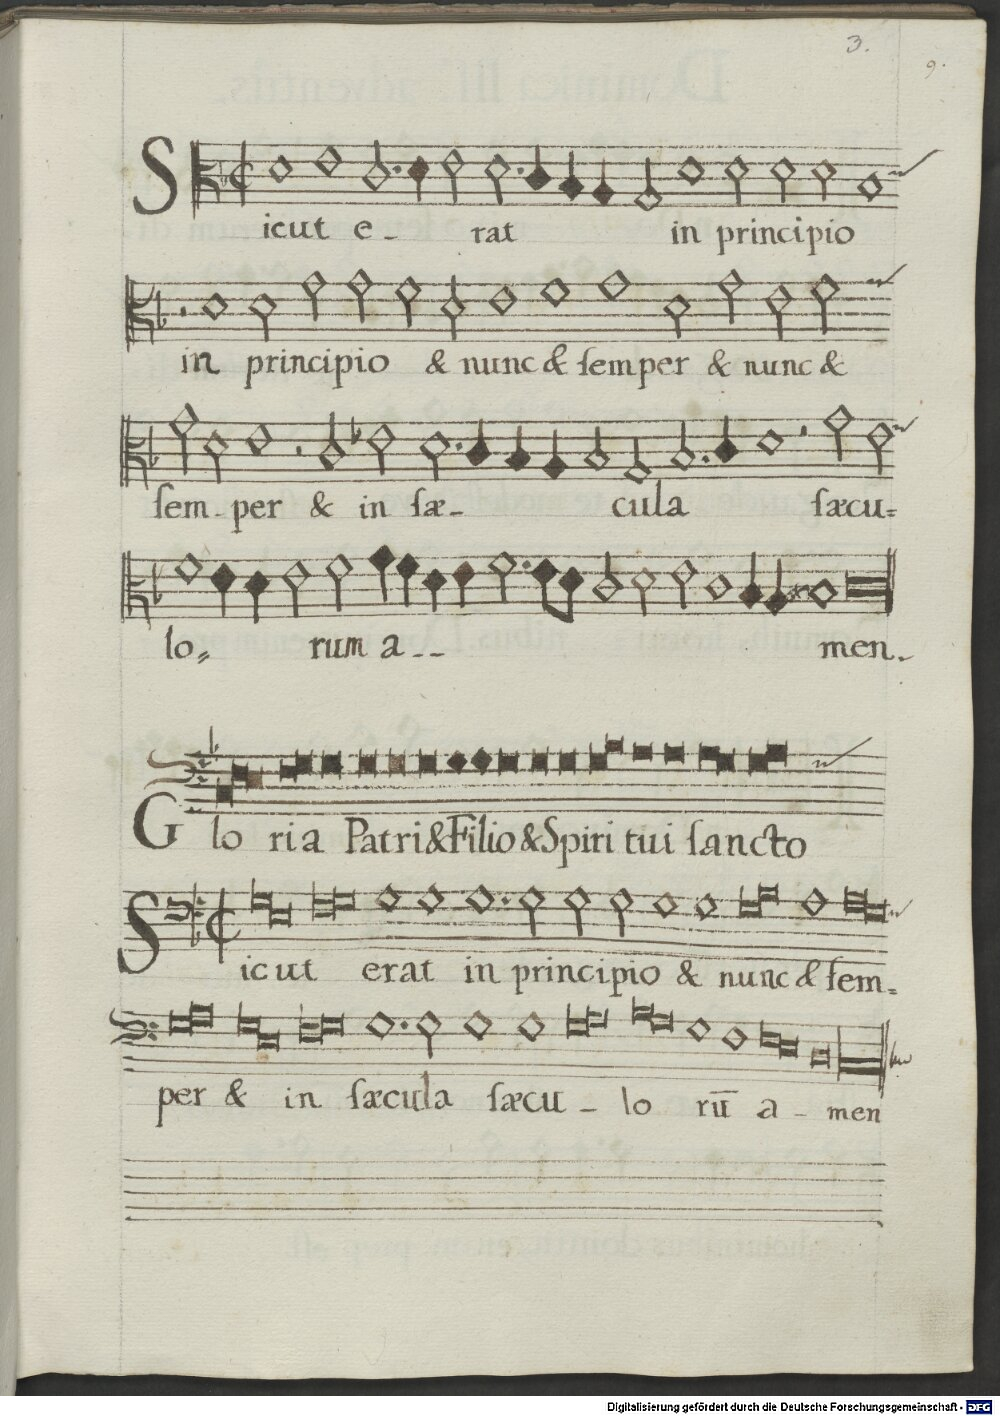 3.
9.
Sicut e - rat in principio
in principio & nunc & semper & nunc &
sem per & in sæ - cula sæcu=
lo= rum a - - men.
Glo ria Patri & Filio & Spiri tui sancto
Sicut erat in principio & nunc & sem=
per & in sæcula sæcu - lo rū a - men
Digitalisierung gefördert durch die Deutsche Forschungsgemeinschaft - DFG